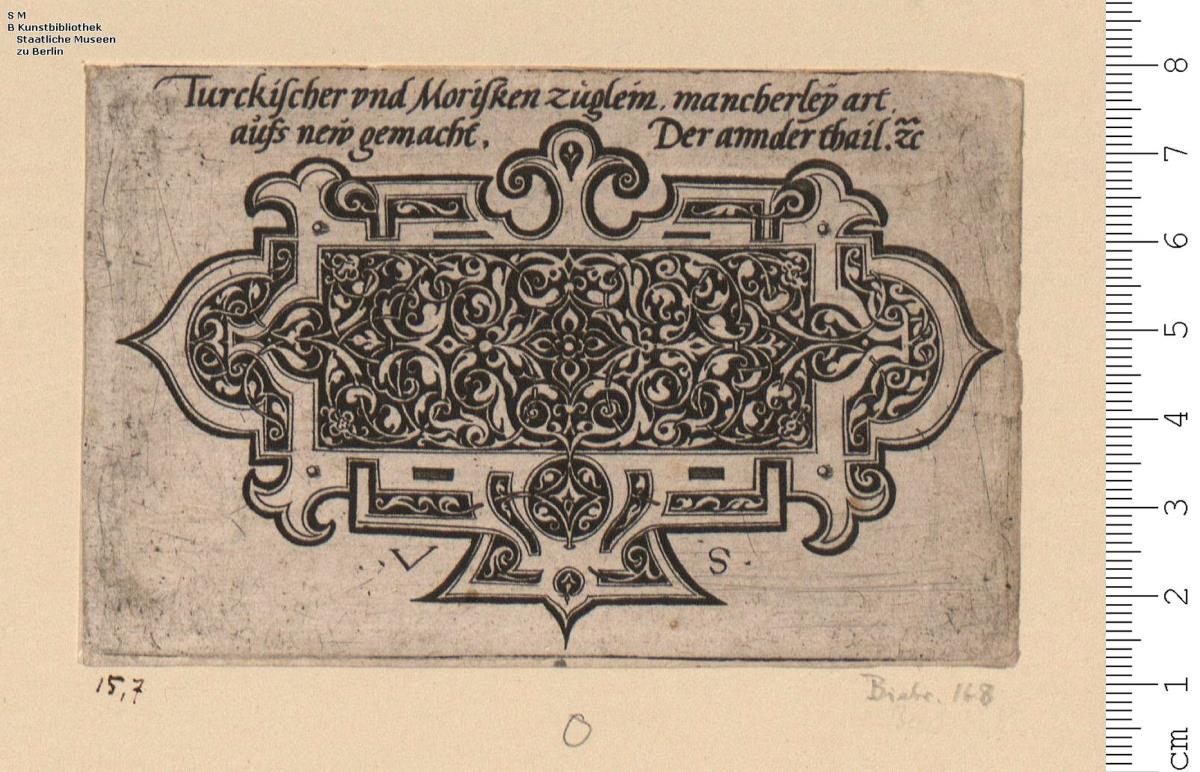 S M
B Kunstbibliothek
Staatliche Museen
zu Berlin
Turckiſcher vnd Moriſken zůglein. mancherleÿ art.
aůfs neẅ gemacht. Der annder thail. ꝛc̃
V S
15,7
168
O
8
7
6
5
4
3
2
1
cm